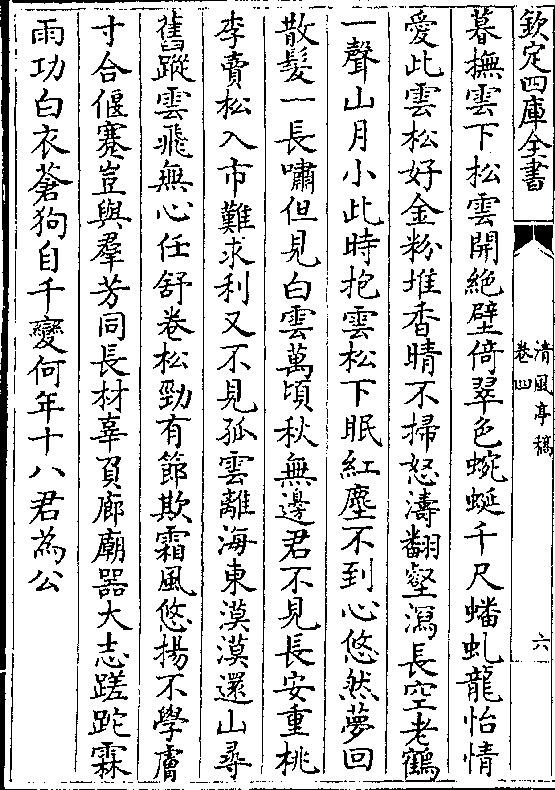 欽定四庫全書
清風亭稿
卷四
六
暮撫雲下松雲開絶壁倚翠色蜿蜒千尺蟠虬龍怡情
愛此雲松好金粉堆香晴不掃怒濤翻壑瀉長空老鶴
一聲山月小此時抱雲松下眠紅塵不到心悠然夢回
散髮一長嘯但見白雲萬頃秋無邊君不見長安重桃
李賣松入市難求利又不見孤雲離海東漠漠還山尋
舊蹤雲飛無心任舒卷松勁有節欺霜風悠揚不學膚
寸合偃蹇豈與羣芳同長材辜負廊廟器大志蹉跎霖
雨功白衣蒼狗自千變何年十八君為公